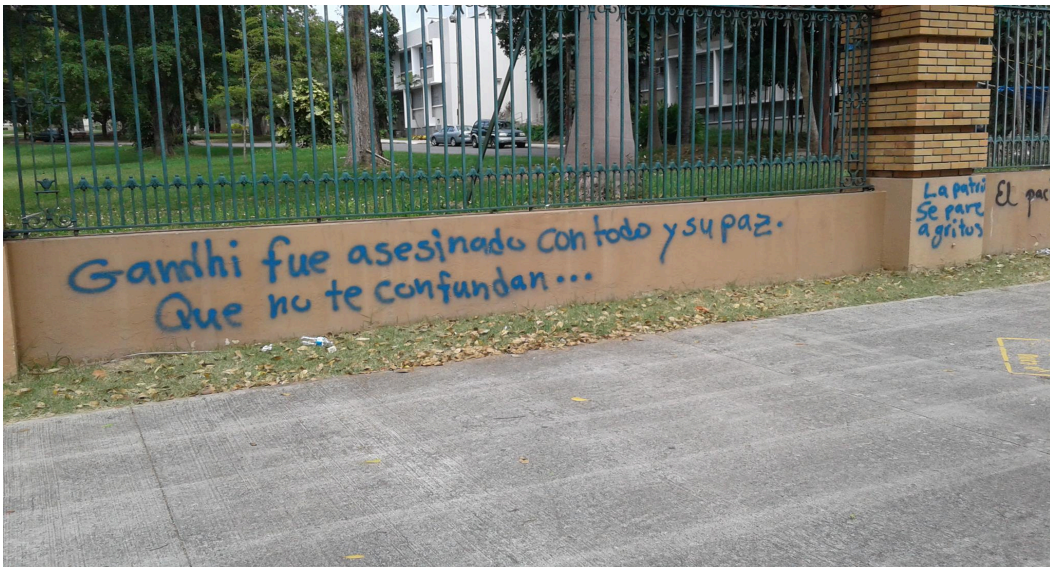 Gandhi fue asesinado con todo y su paz.
Que no te confundan...
La patri
Se pare
a gritos
El pac